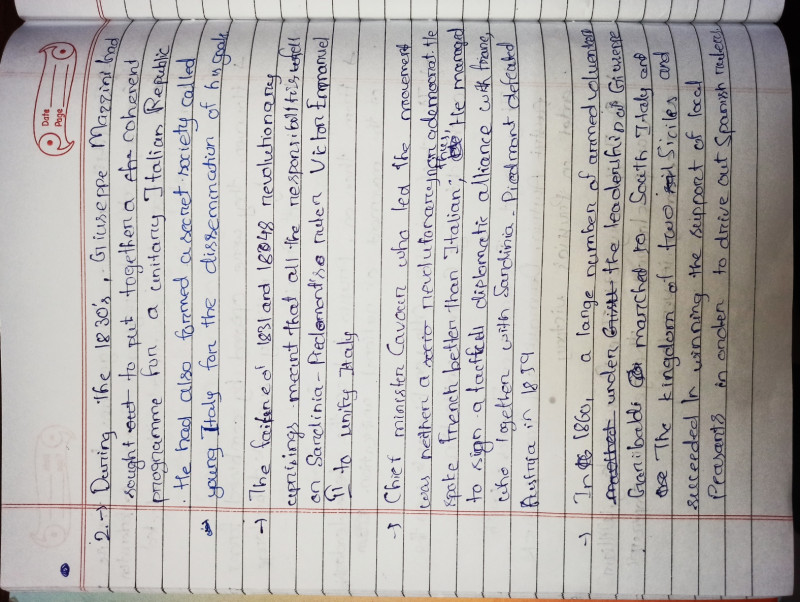 Date
Page
2.→ During the 1830's, Giuseppe Mazzini had
sought to put together a coherent
programme for a unitary Italian Republic
. He had also formed a secret society called
young Italy for the dissemination of his goals
→ The failure of 1831 and 1848 revolutionary
uprisings meant that all the responsibility
on Sardinia-Piedmont's ruler Victor Emmanuel
II to unify Italy
→ Chief minister Cavour who led the movement
was neither a revolutionary nor a democrat He
spoke French better than Italian; Thus, He managed
to sign a tactfull diplomatic alliance with France,
who together with Sardinia-Piedmont defeated
Austria in 1859
→ In 1860, a large number of armed volunteers
under the leadership of Giuseppe
Garibaldi marched to South Italy and
The kingdom of two Sicilies and
succeeded in winning the support of local
Peasants in order to drive out Spanish rulers